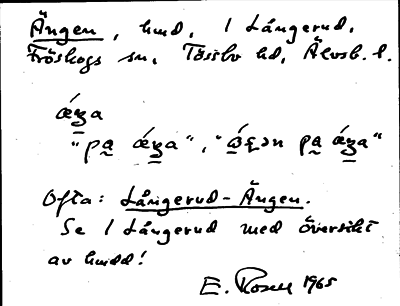 Ängen, hmd, 1 Långerud,
Fröskogs sn, Tössbo hd, Älvsb. l.
ǽꜫa
"pa ǽꜫa",
Ofta: Långerud-Ängen.
Se 1 Långerud med översikt
av hmdd!
E. Rosell 1965